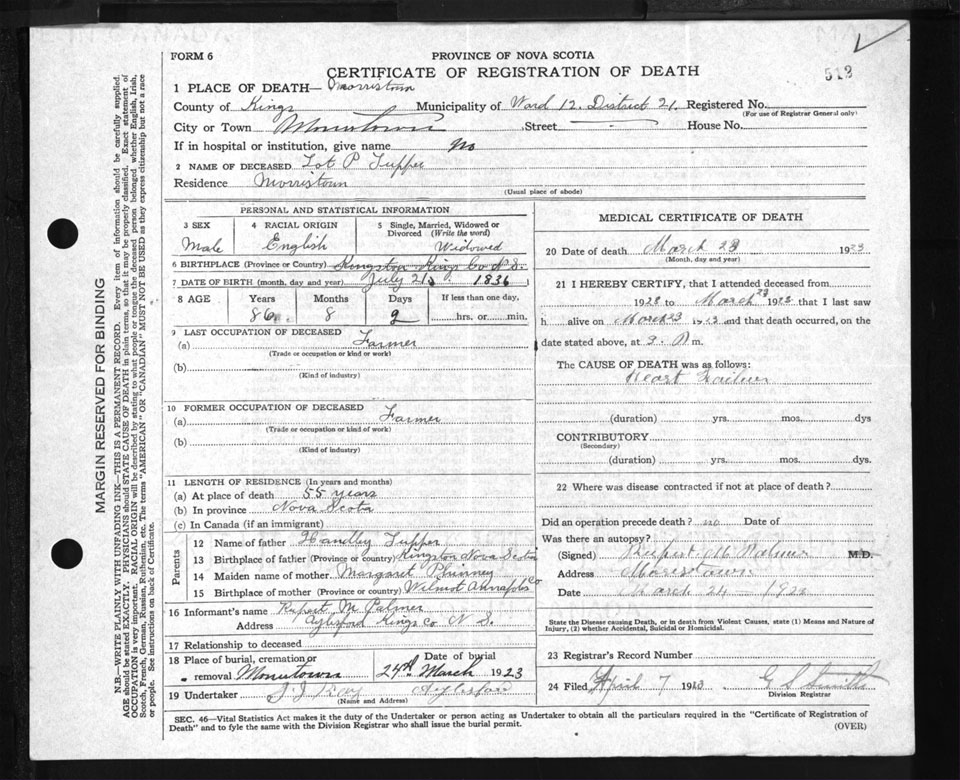 FORM 6
PROVINCE OF NOVA SCOTIA
CERTIFICATE OF REGISTRATION OF DEATH
513
1 PLACE OF DEATH— Morristown
County of Kings Municipality of Ward 12. District 21. Registered No.
(For use of Registrar General only)
City or Town Morristown Street House No.
If in hospital or institution, give name No
2 NAME OF DECEASED Lot P Tupper
Residence Morristown
(Usual place of abode)
PERSONAL AND STATISTICAL INFORMATION
3 SEX 4 RACIAL ORIGIN 5 Single, Married, Widowed or Divorced (Write the word)
Male English Widowed
6 BIRTHPLACE (Province or Country) Kingston Kings Co N.S.
7 DATE OF BIRTH (month, day and year) July 21 1836
8 AGE Years Months Days If less than one day.
86 8 2 hrs. or min.
9 LAST OCCUPATION OF DECEASED
(a) Farmer
(Trade or occupation or kind or work)
(b)
(Kind of industry)
10 FORMER OCCUPATION OF DECEASED
(a) Farmer
(Trade or occupation or kind or work)
(b)
(Kind of industry)
11 LENGTH OF RESIDENCE (In years and months)
(a) At place of death 55 years
(b) In province Nova Scota
(c) In Canada (if an immigrant)
Parents
12 Name of father Handley Tupper
13 Birthplace of father (Province or country) Kingston Nova Scotia
14 Maiden name of mother Margaret Phinney
15 Birthplace of mother (Province or country) Wilmot Annapolis Co
16 Informant's name Rupert M Palmer
Address Aylesford Kings Co N S.
17 Relationship to deceased
18 Place of burial, cremation or removal Morristown
Date of burial 24th March 1923
19 Undertaker Aylesford
(Name and Address)
MEDICAL CERTIFICATE OF DEATH
20 Date of death March 23 1923
(Month, day and year)
21 I HEREBY CERTIFY, that I attended deceased from
1923 to March 23 1923 that I last saw
h alive on March 23 1923 and that death occurred, on the
date stated above, at 3. P m.
The CAUSE OF DEATH was as follows:
Heart Failure
(duration) yrs. mos. dys
CONTRIBUTORY
(Secondary)
(duration) yrs. mos. dys.
22 Where was disease contracted if not at place of death?
Did an operation precede death? no Date of
Was there an autopsy?
(Signed) Rupert M Palmer M.D.
Address Morristown
Date March 24 — 1923
State the Disease causing Death, or in death from Violent Causes, state (1) Means and Nature of
Injury, (2) whether Accidental, Suicidal or Homicidal.
23 Registrar's Record Number
24 Filed April 7 1923
Division Registrar
SEC. 46—Vital Statistics Act makes it the duty of the Undertaker or person acting as Undertaker to obtain all the particulars required in the "Certificate of Registration of
Death" and to fyle the same with the Division Registrar who shall issue the burial permit.
(OVER)
MARGIN RESERVED FOR BINDING
N.B—WRITE PLAINLY WITH UNFADING INK—THIS IS A PERMANENT RECORD. Every item of information should be carefully supplied.
AGE should be stated EXACTLY. PHYSICIANS should STATE CAUSE OF DEATH in plain terms, so that it may be properly classified. Exact statement of
OCCUPATION is very important. RACIAL ORIGIN will be described by stating to what people or tongue the deceased person belonged whether English, Irish,
Scotch, French, German, Russian, Ruthenian, etc. The terms "AMERICAN" OR "CANADIAN" MUST NOT BE USED as they express citizenship but not a race
or people. See instructions on back of Certificate.